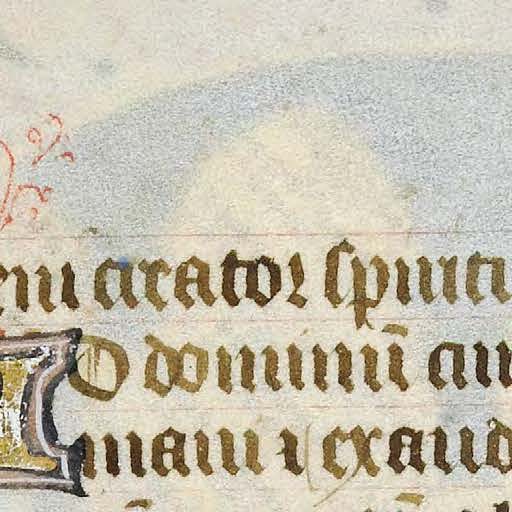 eni creator spiritu
D dominū cu
mam ⁊ exaud